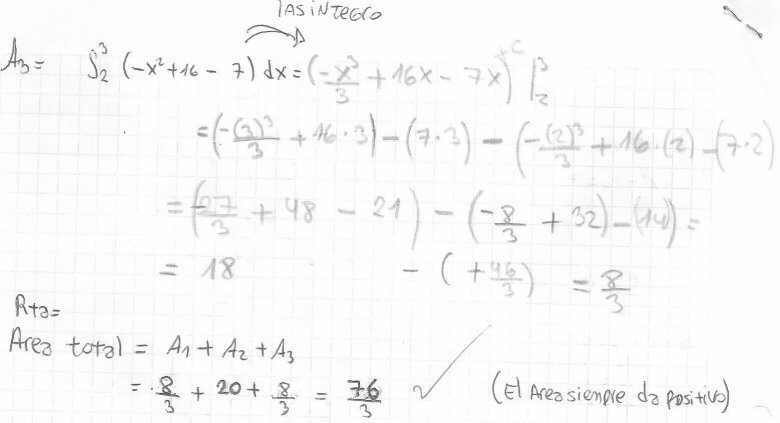 las integro
A₃ = ∫₂³ (-x² + 16 - 7) dx = (-x³/3 + 16x - 7x)^{+C} |₂³
= (-(3)³/3 + 16·3) - (7·3) - (-(2)³/3 + 16·(2) - (7·2)
= (-27/3 + 48 - 21) - (-8/3 + 32) - (14)) =
= 18 - (+46/3) = 8/3
Rta=
Area total = A₁ + A₂ + A₃
= 8/3 + 20 + 8/3 = 76/3 ✓ (El Area siempre da positivo)